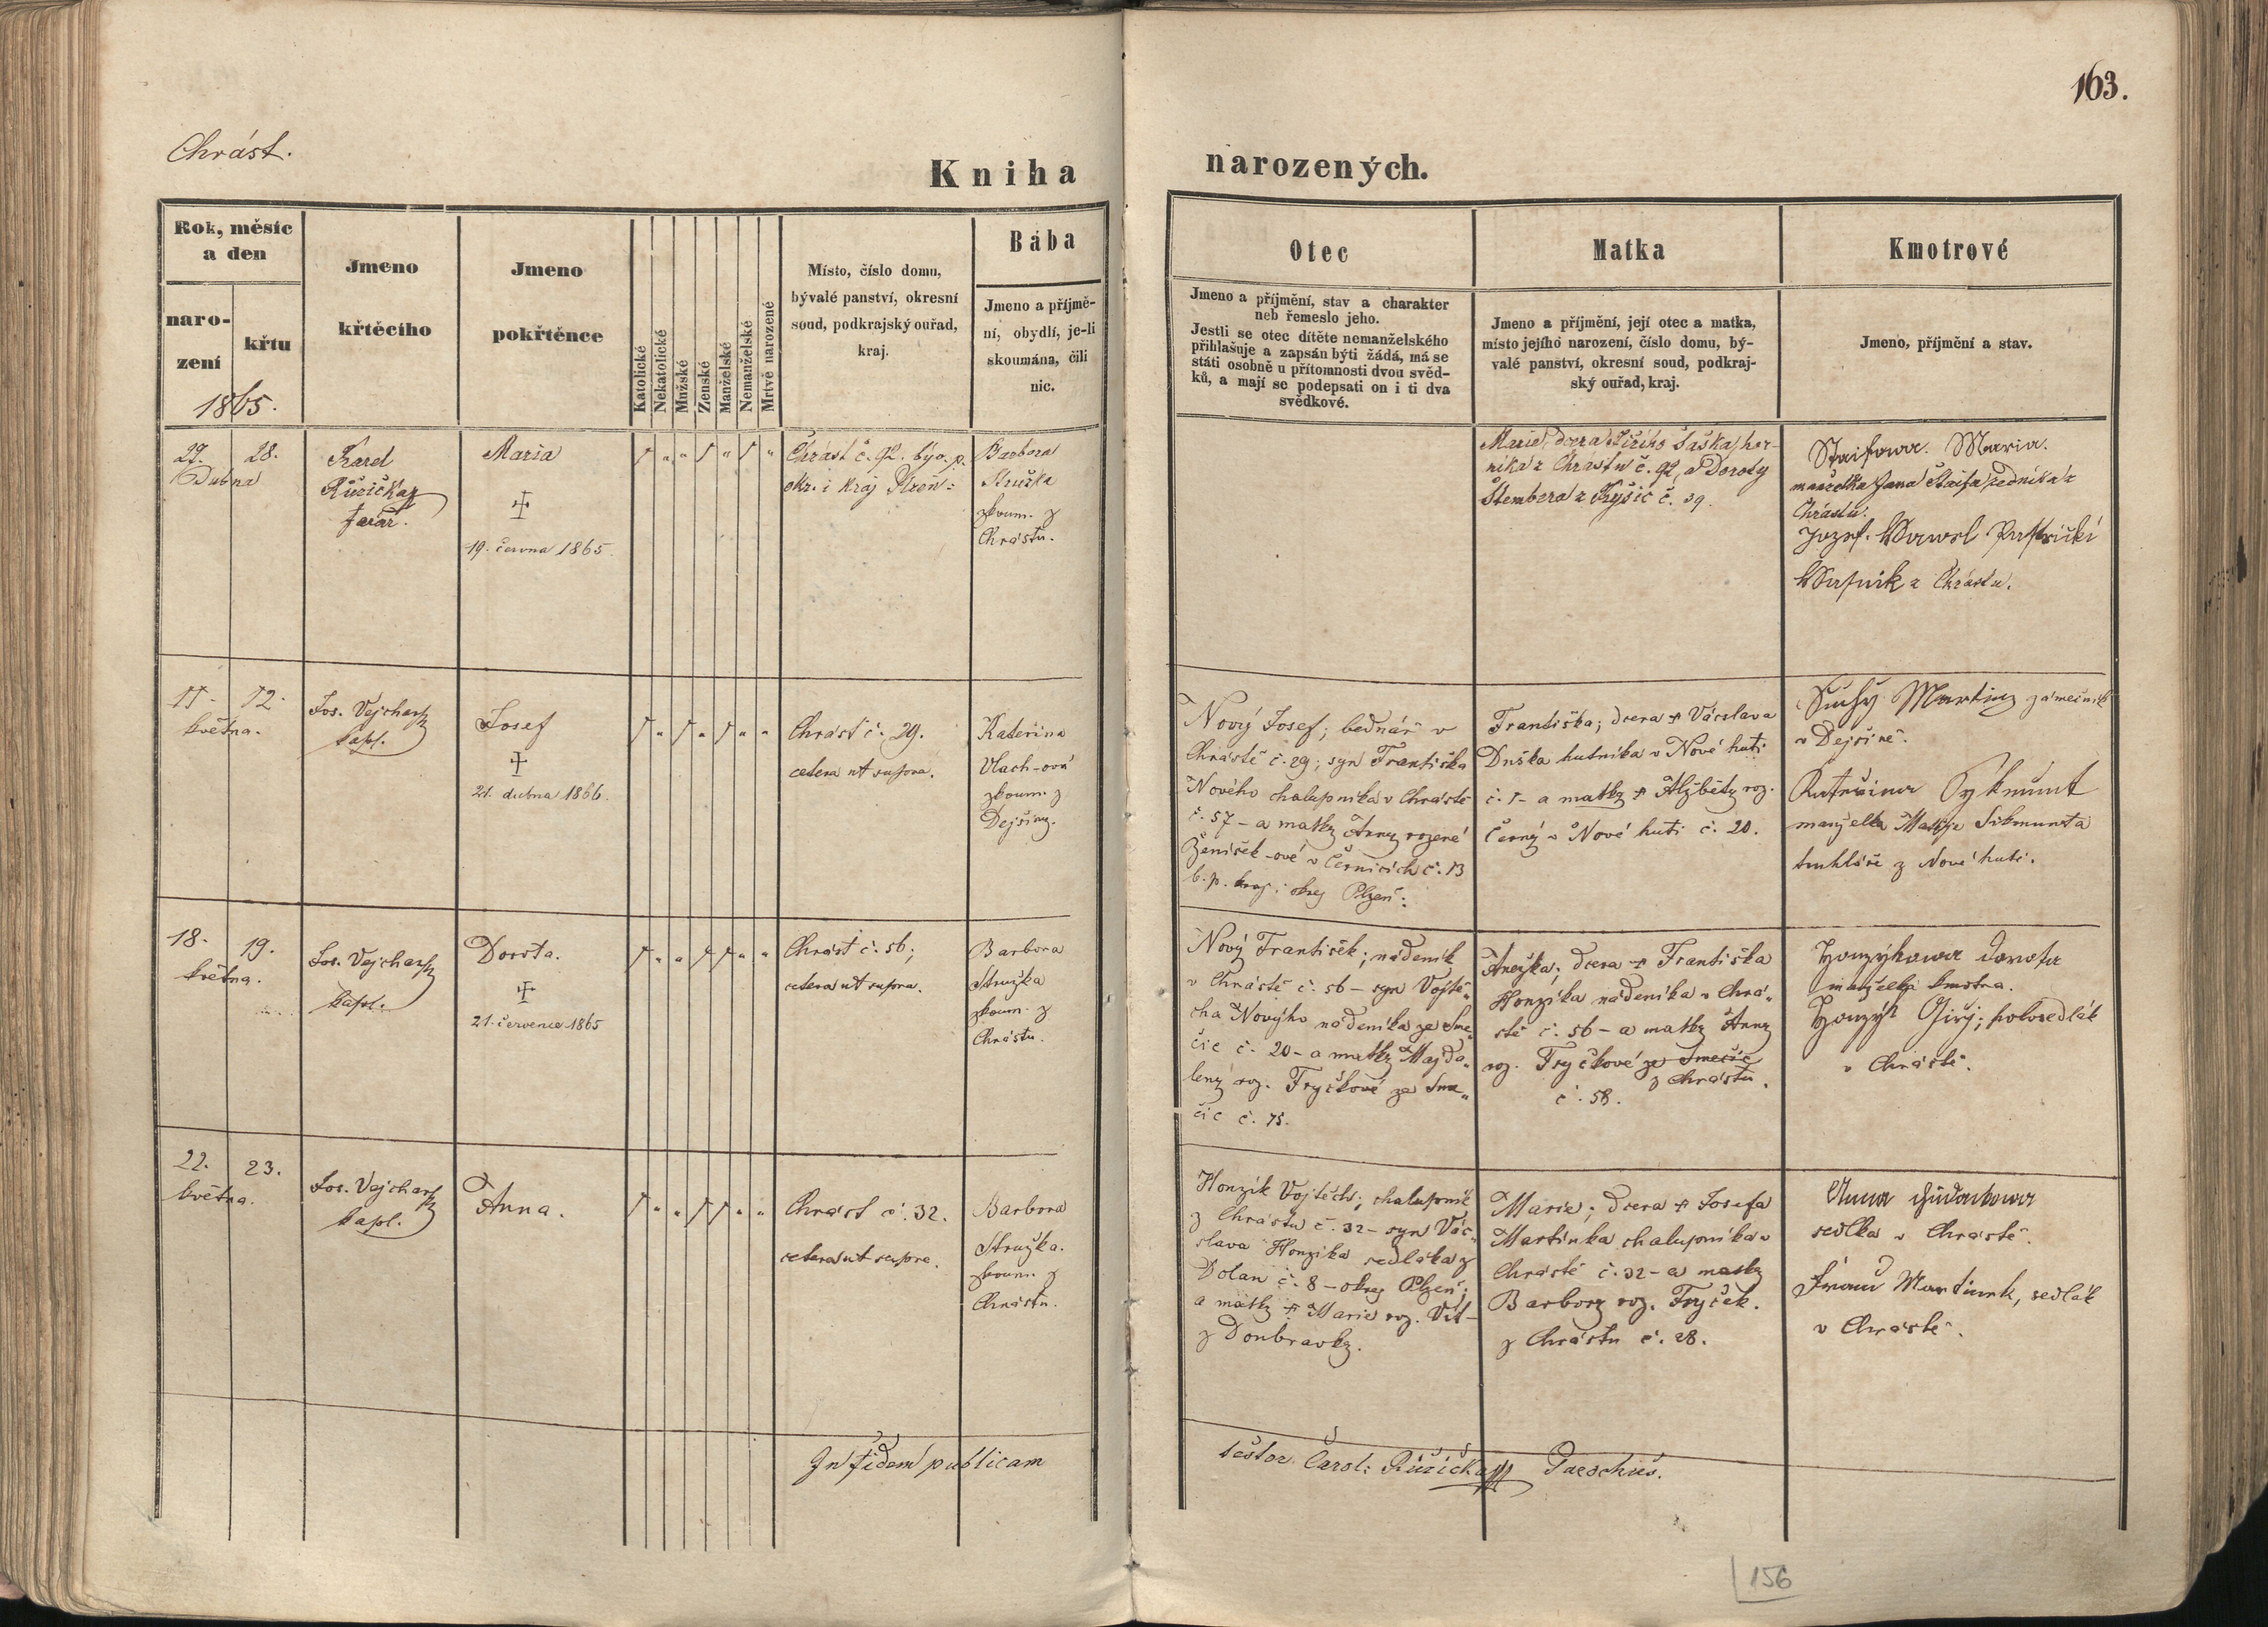 163.
Chrást.
Kniha narozených.
Rok, měsíc
a den
naro-
zení
křtu
1865.
Jmeno
křtěcího
Jmeno
pokřtěnce
Katolické
Nekatolické
Mužské
Ženské
Manželské
Nemanželské
Mrtvě narozené
Místo, číslo domu,
bývalé panství, okresní
soud, podkrajský ouřad,
kraj.
Bába
Jmeno a příjmě-
ní, obydlí, je-li
skoumána, čili
nic.
Otec
Jmeno a příjmění, stav a charakter
neb řemeslo jeho.
Jestli se otec dítěte nemanželského
přihlašuje a zapsán býti žádá, má se
státi osobně u přítomnosti dvou svěd-
ků, a mají se podepsati on i ti dva
svědkové.
Matka
Jmeno a příjmění, její otec a matka,
místo jejího narození, číslo domu, bý-
valé panství, okresní soud, podkraj-
ský ouřad, kraj.
Kmotrové
Jmeno, příjmění a stav.
27. 28.
Dubna
Karel
Růžička
farář.
Maria
19. června 1865.
Chrást č. 92. býv. p.
okr. i kraj Plzeň:
Barbora
Stružka
zkoum. z
Chrástu.
Marie, dcera Jiřího Saška, hor-
níka z Chrástu č. 92, a Doroty
Štembera z Kyšic č. 39.
Staifowa. Maria.
manželka Jana Štaifa, zedníka z
Chrástu.
Jozef. Wawrl
z Chrástu.
11. 12.
května.
Jos. Vejchar
kapl.
Josef
21. dubna 1866.
Chrást č. 29.
cetera ut supra.
Kateřina
Vlach-ová
zkoum. z
Dejšiny.
Nový Josef; bednář v
Chrástě č. 29; syn Františka
Nového chalupníka v Chrástě
č. 57 – a matky Anny rozené
Ženíšek-ové v Černicích č. 13
b. p. kraj i okres Plzeň:
Františka; dcera + Václava
Duška hutníka v Nové huti
č. 1 – a matky + Alžběty roz.
Černý v Nové huti č. 20.
Suchý Martin zámečník
v Dejšině.
Kateřina Sykmunt
manželka Matěje Sikmunta
truhláře z Nové huti.
18. 19.
května.
Jos. Vejchar
kapl.
Dorota.
21. července 1865
Chrást č. 56;
cetera ut supra.
Barbora
Stružka
zkoum. z
Chrástu.
Nový František; nádeník
v Chrástě č. 56 – syn Vojtě„
cha Nového nádeníka ze Sme„
čic č. 20 – a matky Majda„
leny roz. Fryčkové ze Sme„
čic č. 15.
Anežka; dcera + Františka
Honzíka nádeníka v Chrá„
stě č. 56 – a matky Anny
roz. Fryčkové ze Smečic
z Chrástu.
č. 58.
Honzýkowa Dorota
manželka kmotra.
Honzýk Girj; polosedlák
v Chrástě.
22. 23.
května.
Jos. Vejchar
kapl.
Anna.
Chrást č. 32.
cetera ut supra.
Barbora
Stružka.
zkoum. z
Chrástu.
Honzík Vojtěch; chalupník
z Chrástu č. 32 – syn Vác„
slava Honzíka sedláka z
Dolan č. 8 – okres Plzeň;
a matky + Marie roz. Vít –
z Doubravky.
Marie; dcera + Josefa
Martínka chalupníka v
Chrástě č. 32 – a matky
Barbory roz. Fryček.
z Chrástu č. 28.
Anna
sedlka v Chrástě.
Martinek, sedlák
v Chrástě.
In fidem publicam
testor Carol: Růžička Parochus.
156